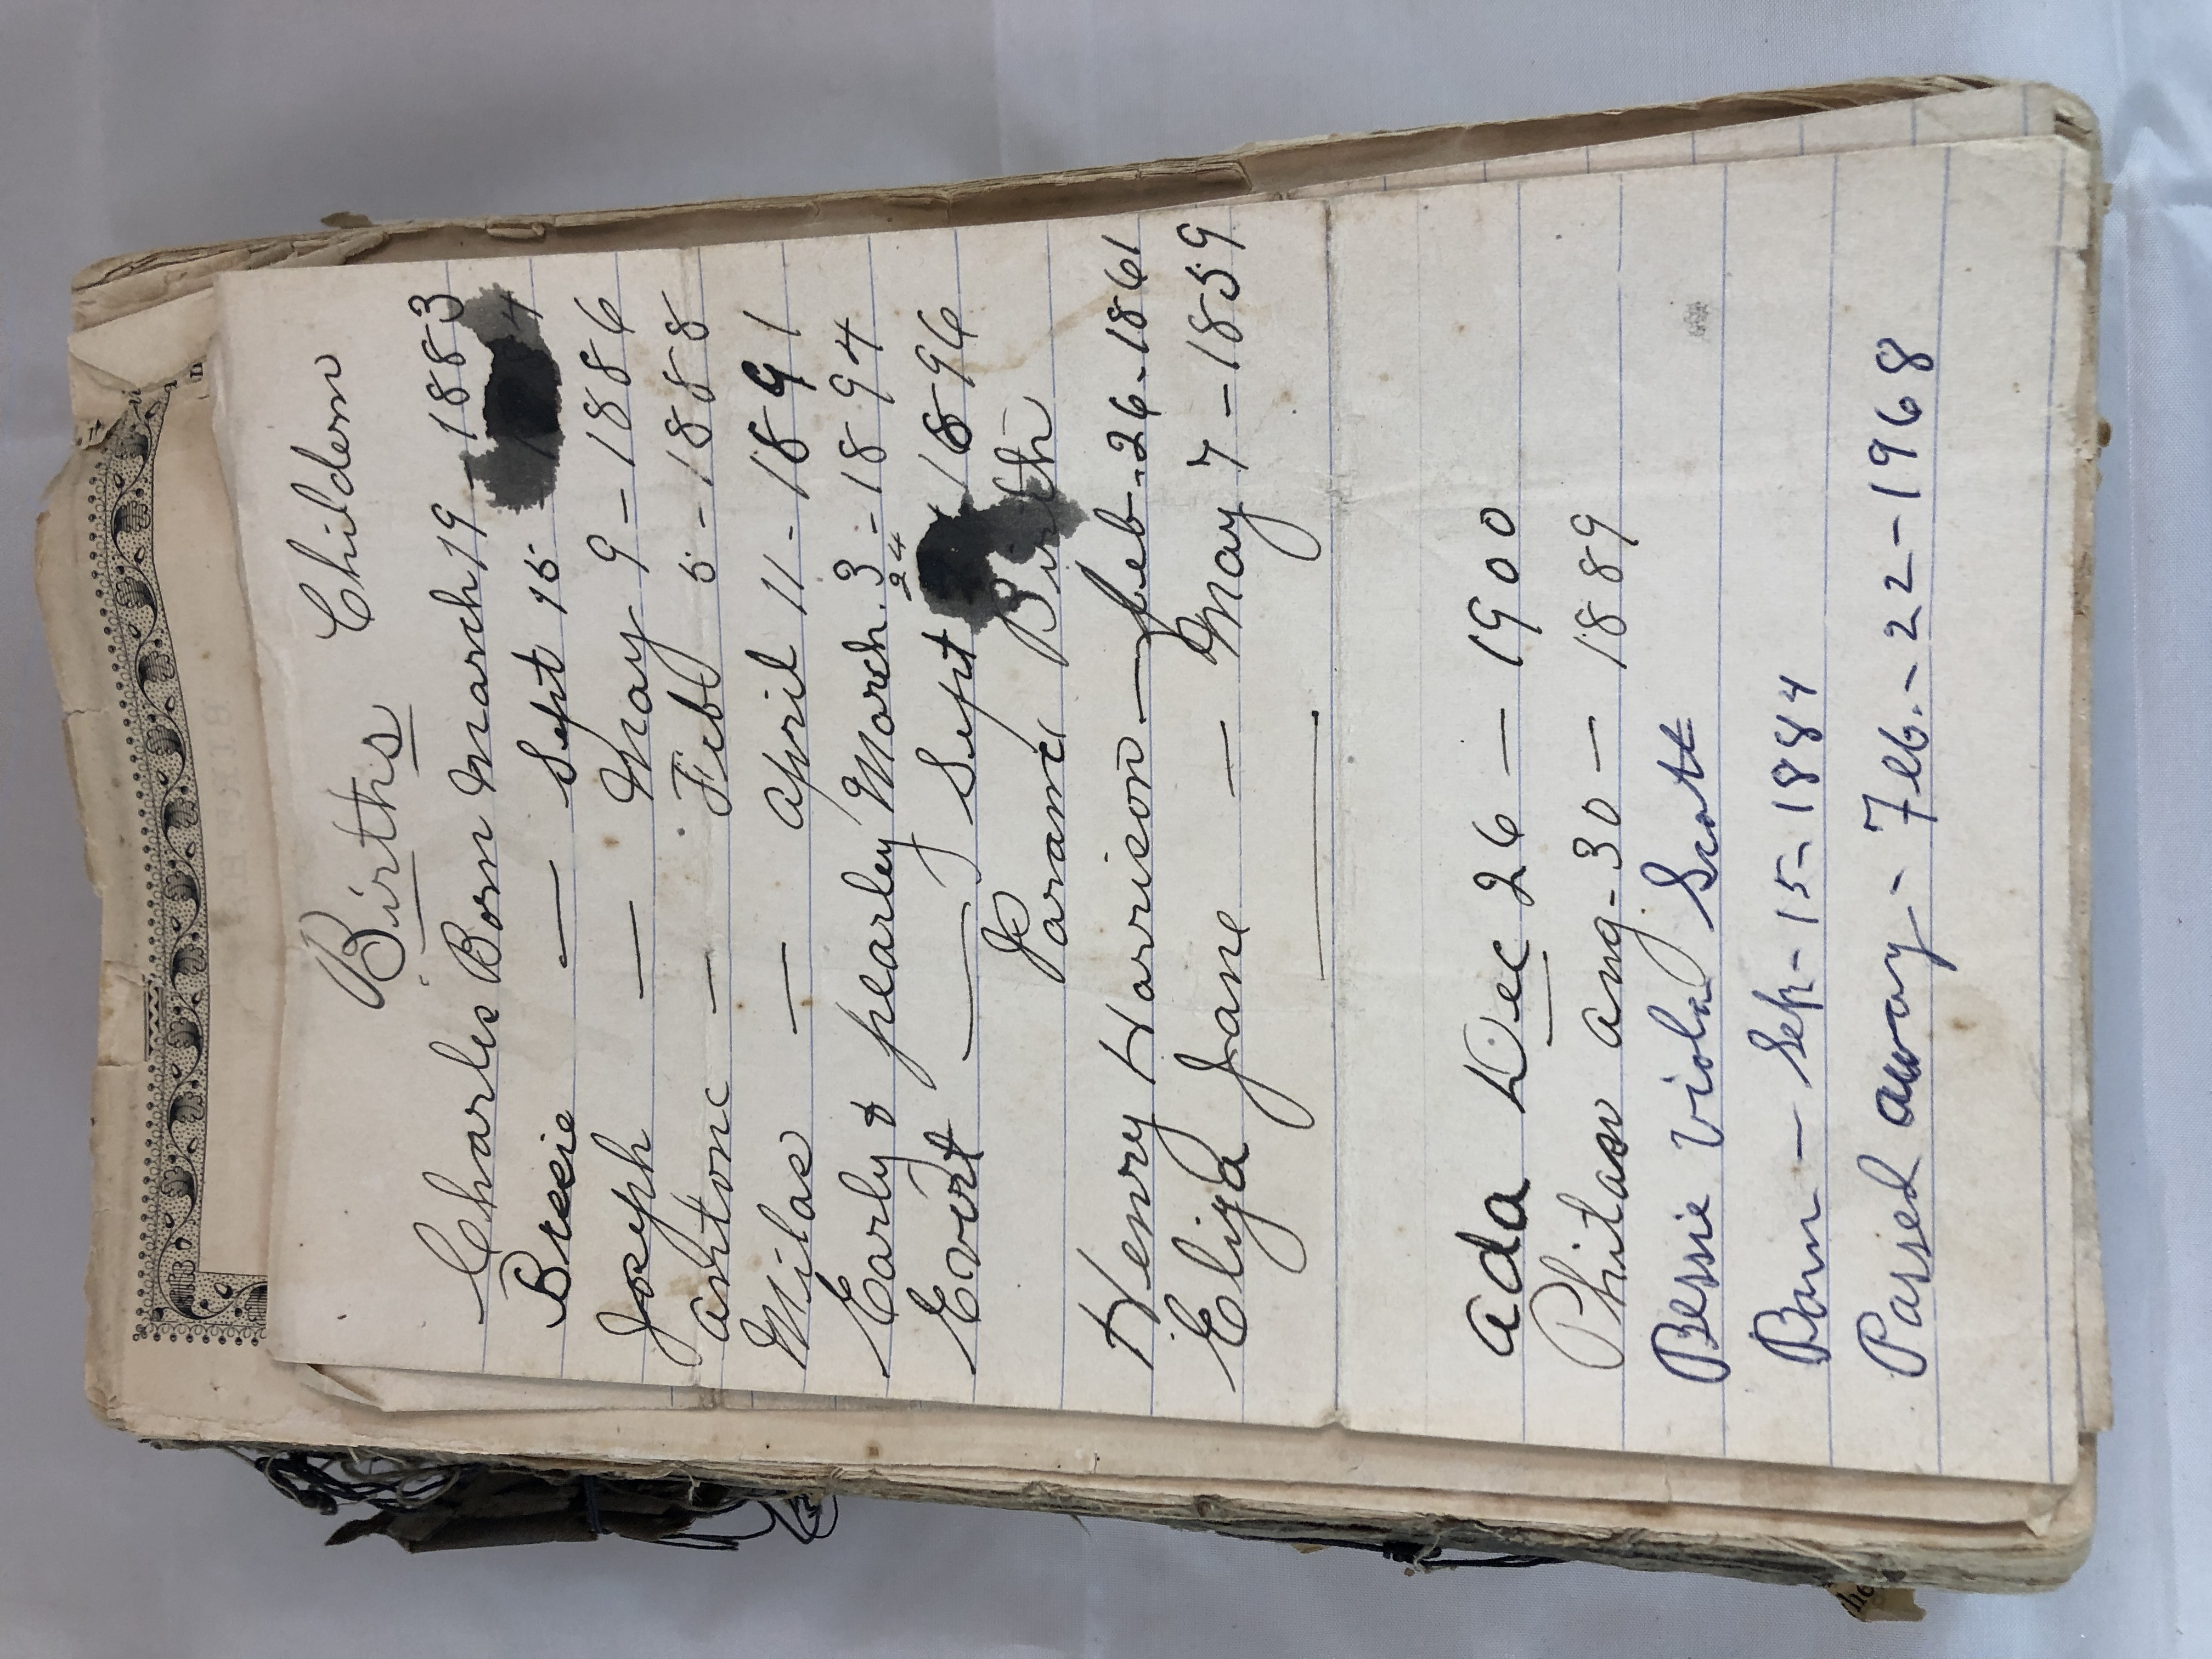 Births Childern
Charles Born March 19 - 1883
Bresie — Sept 15 - 1884
Joseph — May 9 - 1886
Antone — Feb 5 - 1888
Milas — April 11 - 1891
Early & pearley March. 3 - 1894
24
Evert — Sept 1896
Birth
Henry Harrison — feb - 26 - 1861
Eliza Jane — May 7 - 1859
Ada Dec 26 — 1900
Aug - 30 — 1889
Bessie Viola Scott
Born — Sep - 15 - 1884
Passed away - Feb. - 22 - 1968